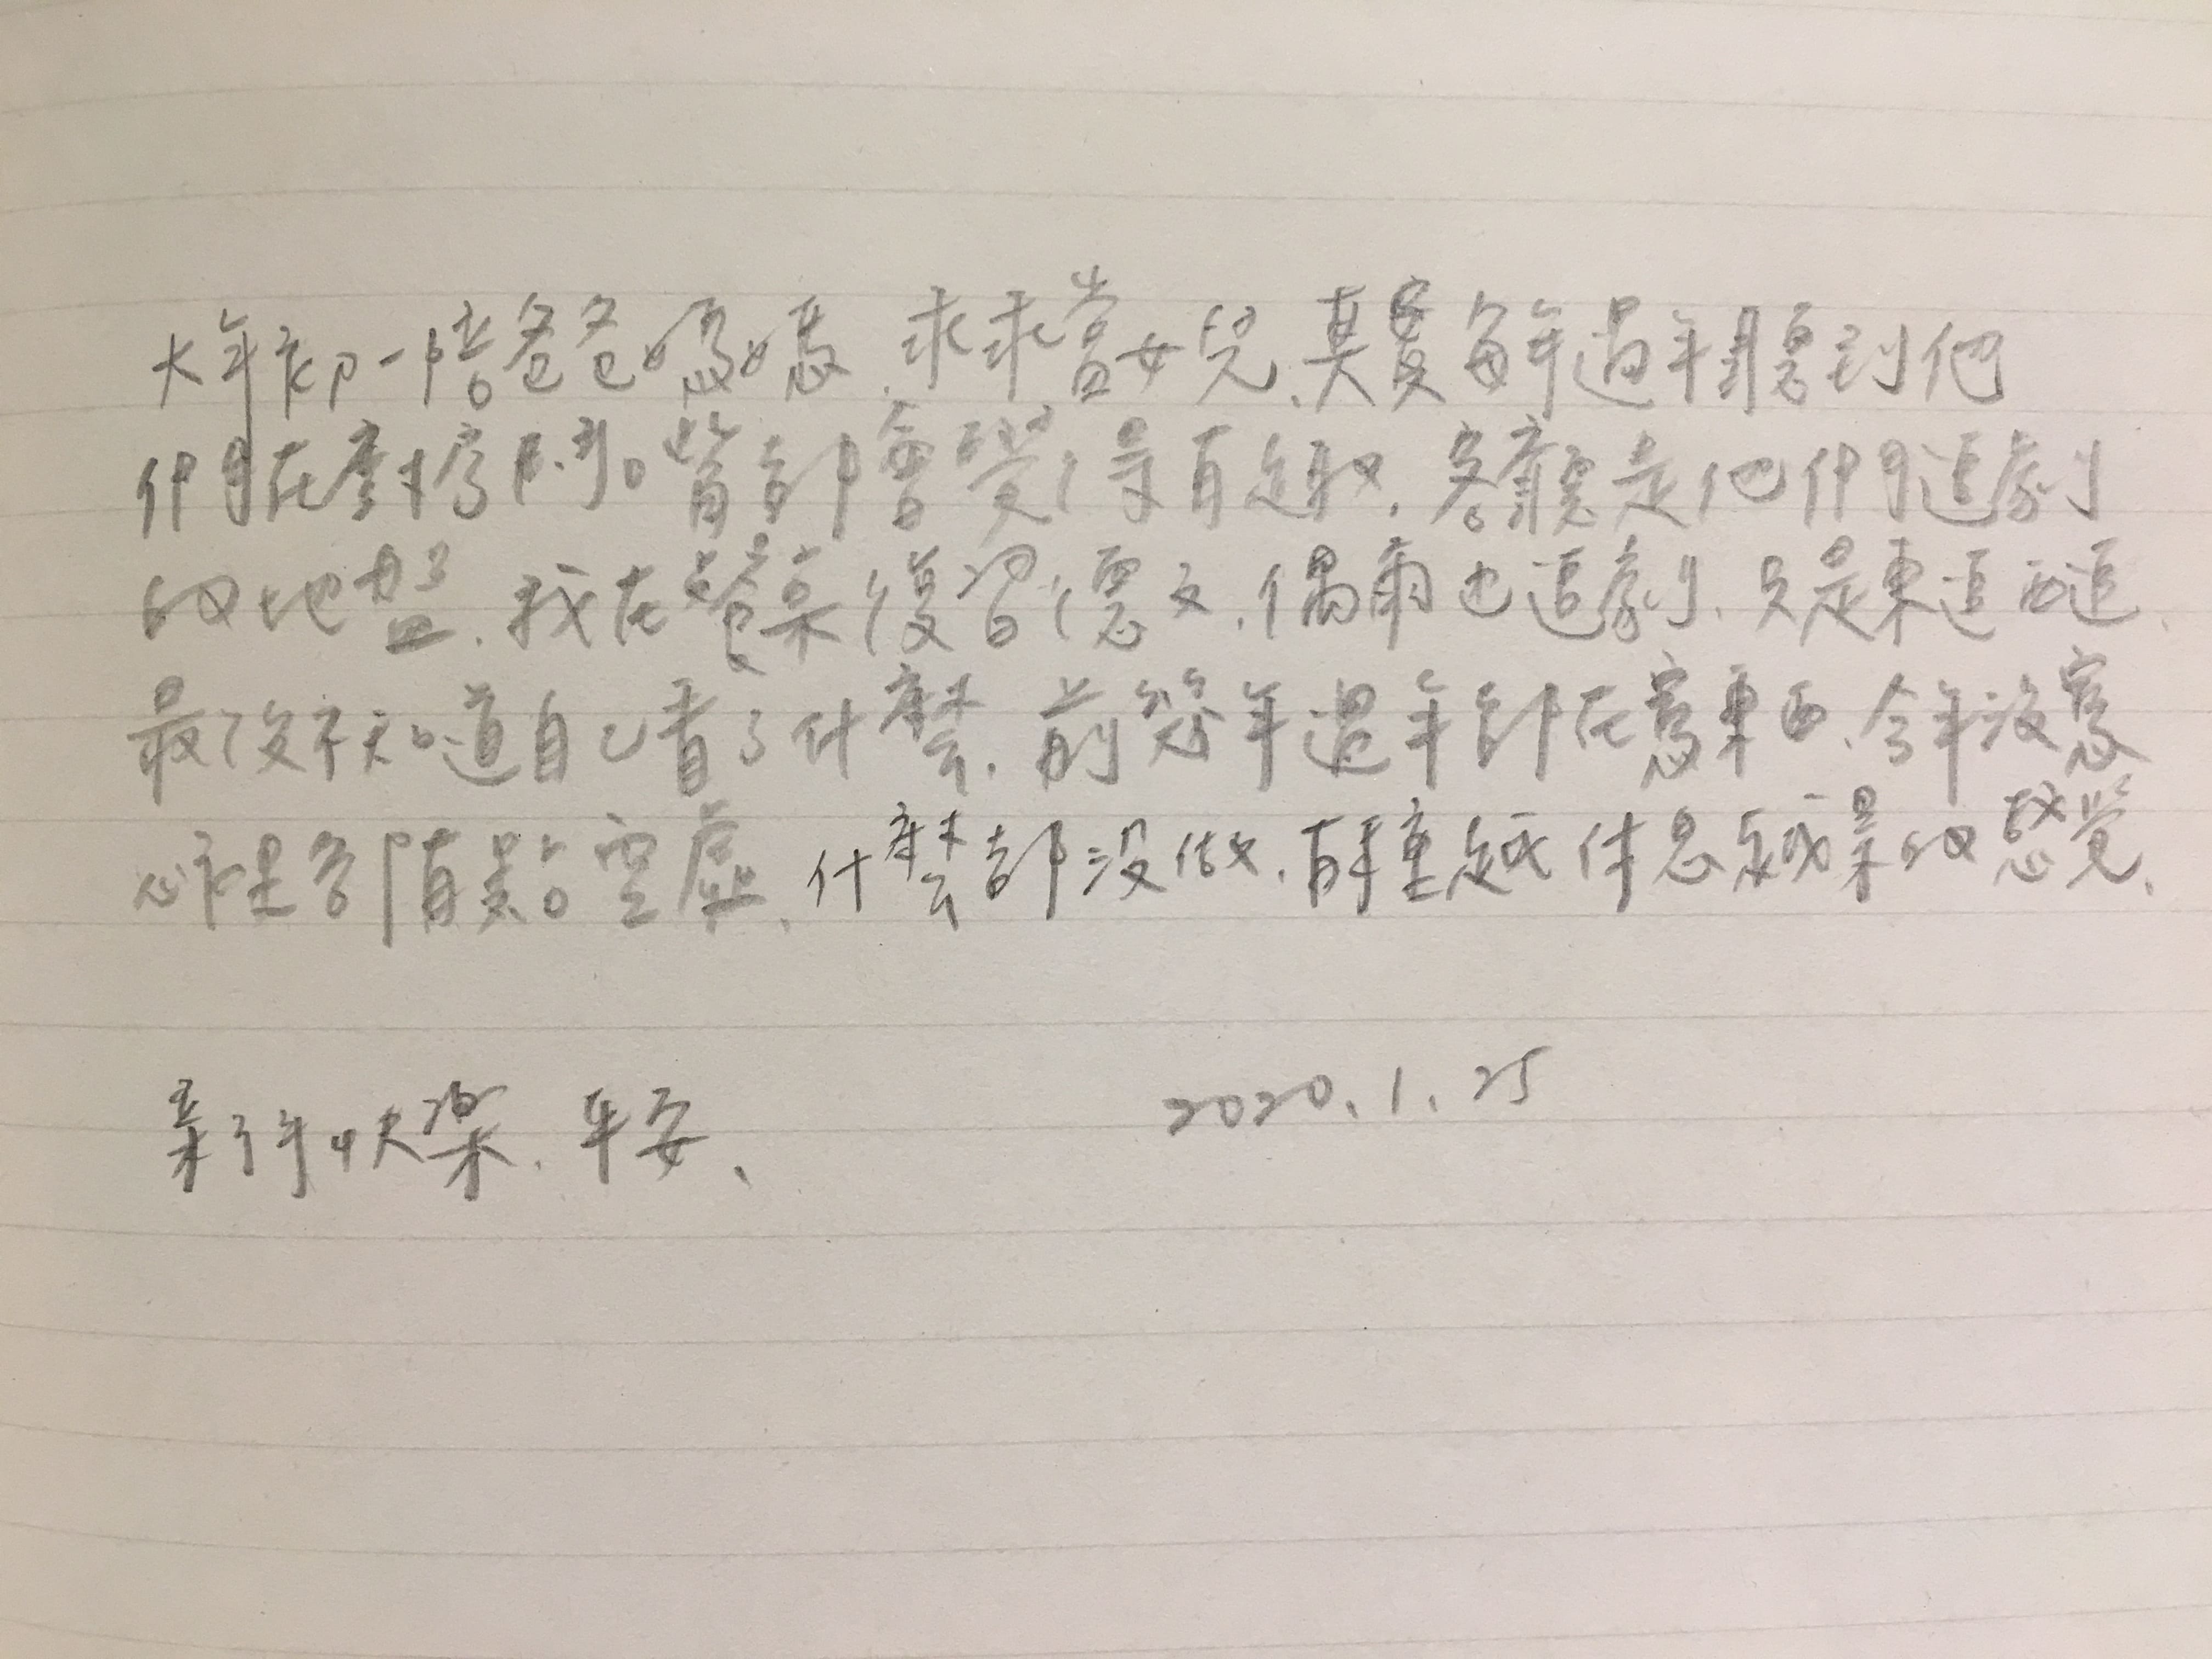 大年初一陪爸爸媽媽,乖乖當女兒、其實每年過年聽到他
們在對停車時都會覺得有趣,客廳是他們追劇
的地盤,我在餐桌復習德文,偶爾也追劇、只是東追西追、
最後不知道自己看了什麼,前幾年過年都在寫東西、今年沒寫
心裡多有點空虛、什麼都沒做,有種越休息越累的感覺、
新年快樂、平安、 2020.1.25